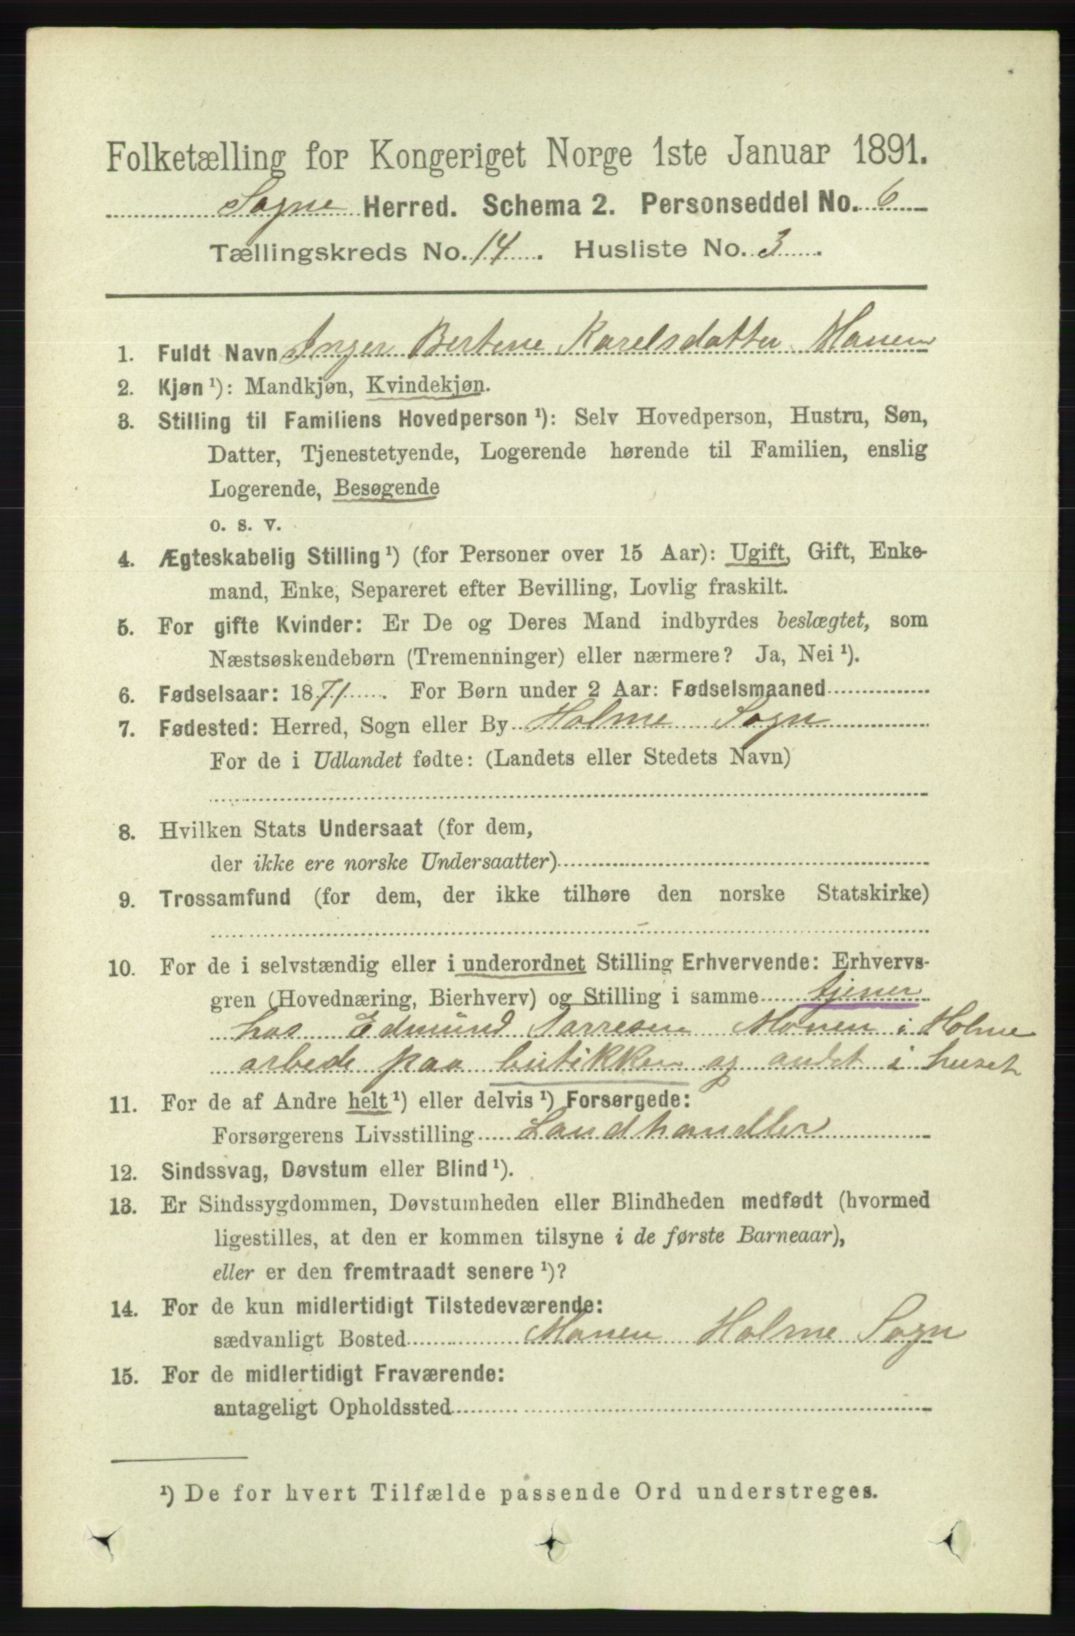 Folketælling for Kongeriget Norge 1ste Januar 1891.
Sogne Herred. Schema 2. Personseddel No. 6
Tællingskreds No. 14. Husliste No. 3.
1. Fuldt Navn Inger Bertene Karelsdatter Monen
2. Kjøn ¹): Mandkjøn, Kvindekjøn.
3. Stilling til Familiens Hovedperson ¹): Selv Hovedperson, Hustru, Søn,
Datter, Tjenestetyende, Logerende hørende til Familien, enslig
Logerende, Besøgende
o. s. v.
4. Ægteskabelig Stilling ¹) (for Personer over 15 Aar): Ugift, Gift, Enke-
mand, Enke, Separeret efter Bevilling, Lovlig fraskilt.
5. For gifte Kvinder: Er De og Deres Mand indbyrdes beslægtet, som
Næstsøskendebørn (Tremenninger) eller nærmere? Ja, Nei ¹).
6. Fødselsaar: 1871. For Børn under 2 Aar: Fødselsmaaned
7. Fødested: Herred, Sogn eller By Holme Sogn
For de i Udlandet fødte: (Landets eller Stedets Navn)
8. Hvilken Stats Undersaat (for dem,
der ikke ere norske Undersaatter)
9. Trossamfund (for dem, der ikke tilhøre den norske Statskirke)
10. For de i selvstændig eller i underordnet Stilling Erhvervende: Erhvervs-
gren (Hovednæring, Bierhverv) og Stilling i samme tjener
hos Edmund Tarresen Monen i Holme
arbede paa butikken og andet i huset
11. For de af Andre helt ¹) eller delvis ¹) Forsørgede:
Forsørgerens Livsstilling Landhandler
12. Sindssvag, Døvstum eller Blind ¹).
13. Er Sindssygdommen, Døvstumheden eller Blindheden medfødt (hvormed
ligestilles, at den er kommen tilsyne i de første Barneaar),
eller er den fremtraadt senere ¹)?
14. For de kun midlertidigt Tilstedeværende:
sædvanligt Bosted Monen Holme Sogn
15. For de midlertidigt Fraværende:
antageligt Opholdssted
¹) De for hvert Tilfælde passende Ord understreges.